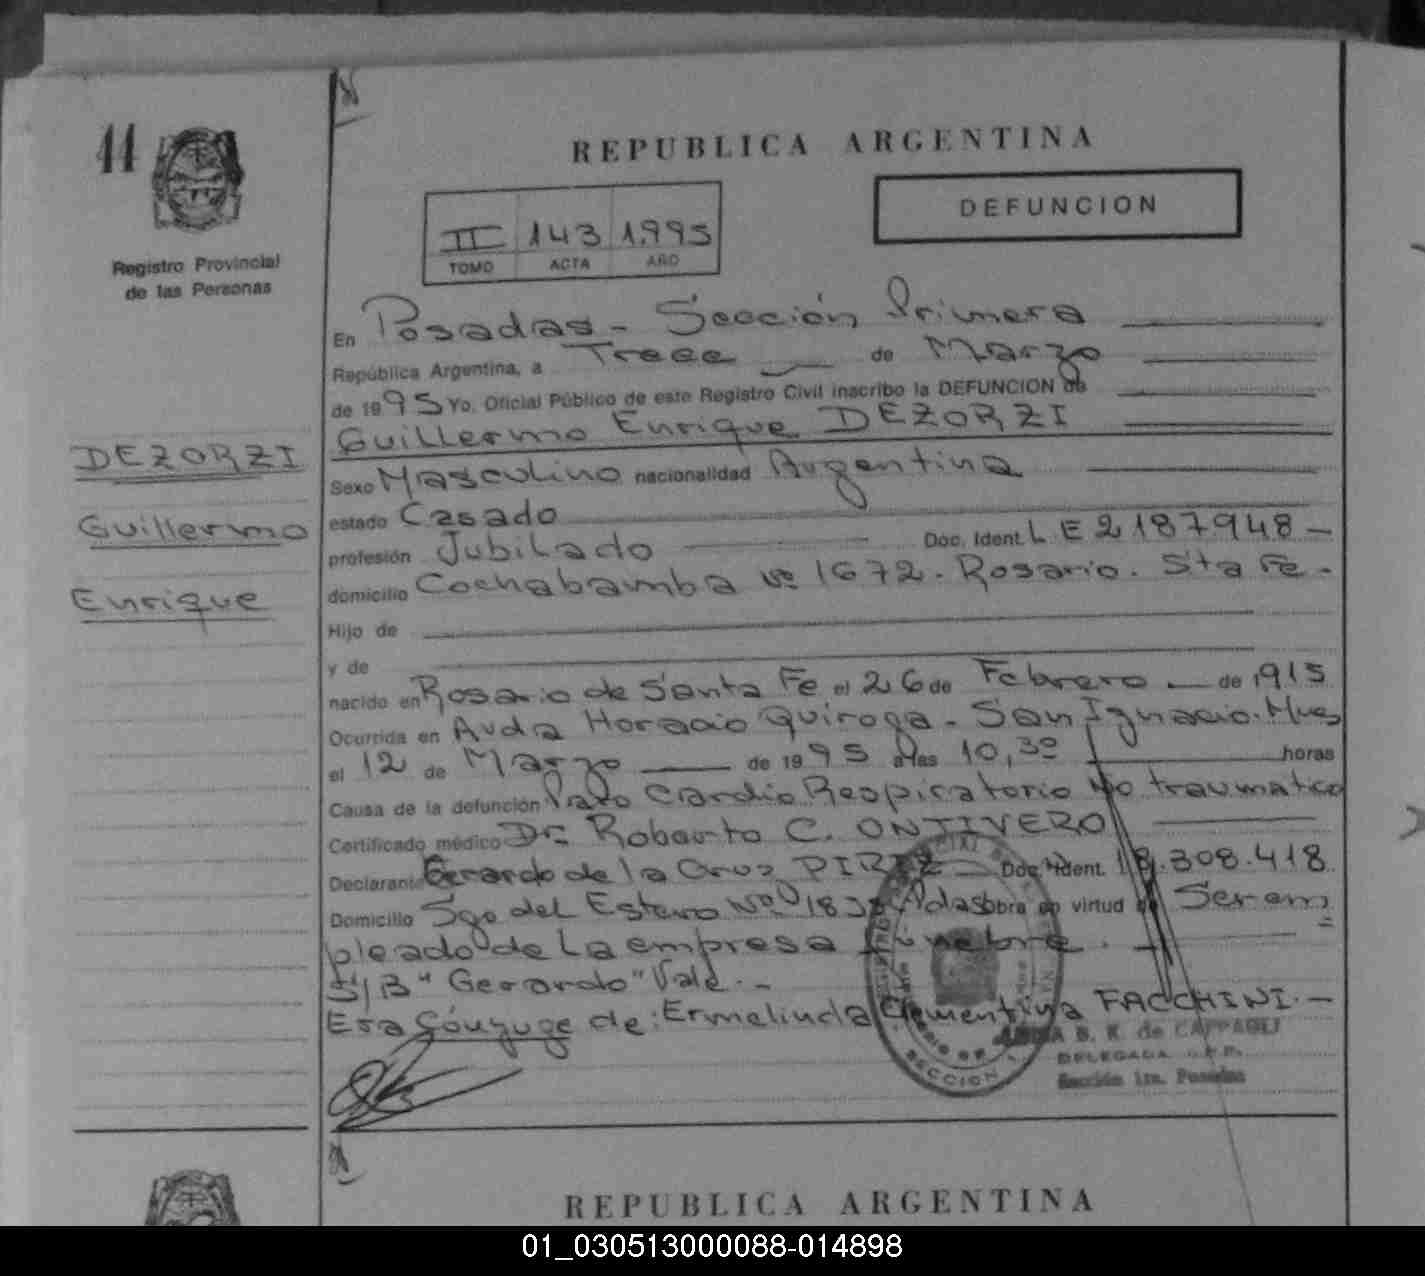 11
Registro Provincial
de las Personas
DEZORZI
Guillermo
Enrique
REPUBLICA ARGENTINA
DEFUNCION
II 143 1.995
TOMO ACTA AÑO
En Posadas - Sección Primera
República Argentina, a Trece de Marzo
de 1995 Yo, Oficial Público de este Registro Civil inscribo la DEFUNCION de
Guillermo Enrique DEZORZI
Sexo Masculino nacionalidad Argentina
estado Casado
profesión Jubilado Doc. Ident. L E 2187.948 -
domicilio Cochabamba Nº 1672. Rosario. Sta Fe.
Hijo de
y de
nacido en Rosario de Santa Fe el 26 de Febrero de 1915
Ocurrida en Avda Horacio Quiroga - San Ignacio. Mnes
el 12 de Marzo de 1995 a las 10,30 horas
Causa de la defunción Paro Cardio Respiratorio No traumatico
Certificado médico Dr. Roberto C. ONTIVERO
Declarante Gerardo de la Cruz Doc. Ident. 18.308.418
Domicilio Sgo del Estero Nº Pdas Obra en virtud de Ser em
pleado de La empresa Funebre.
S/B "Gerardo" Vale. -
Era Cónyuge de: Ermelinda Clementina FACCHINI. -
B. K. de CAPPAGLI
DELEGADA
Sección 1ra. Posadas
SECCION
REPUBLICA ARGENTINA
01_030513000088-014898